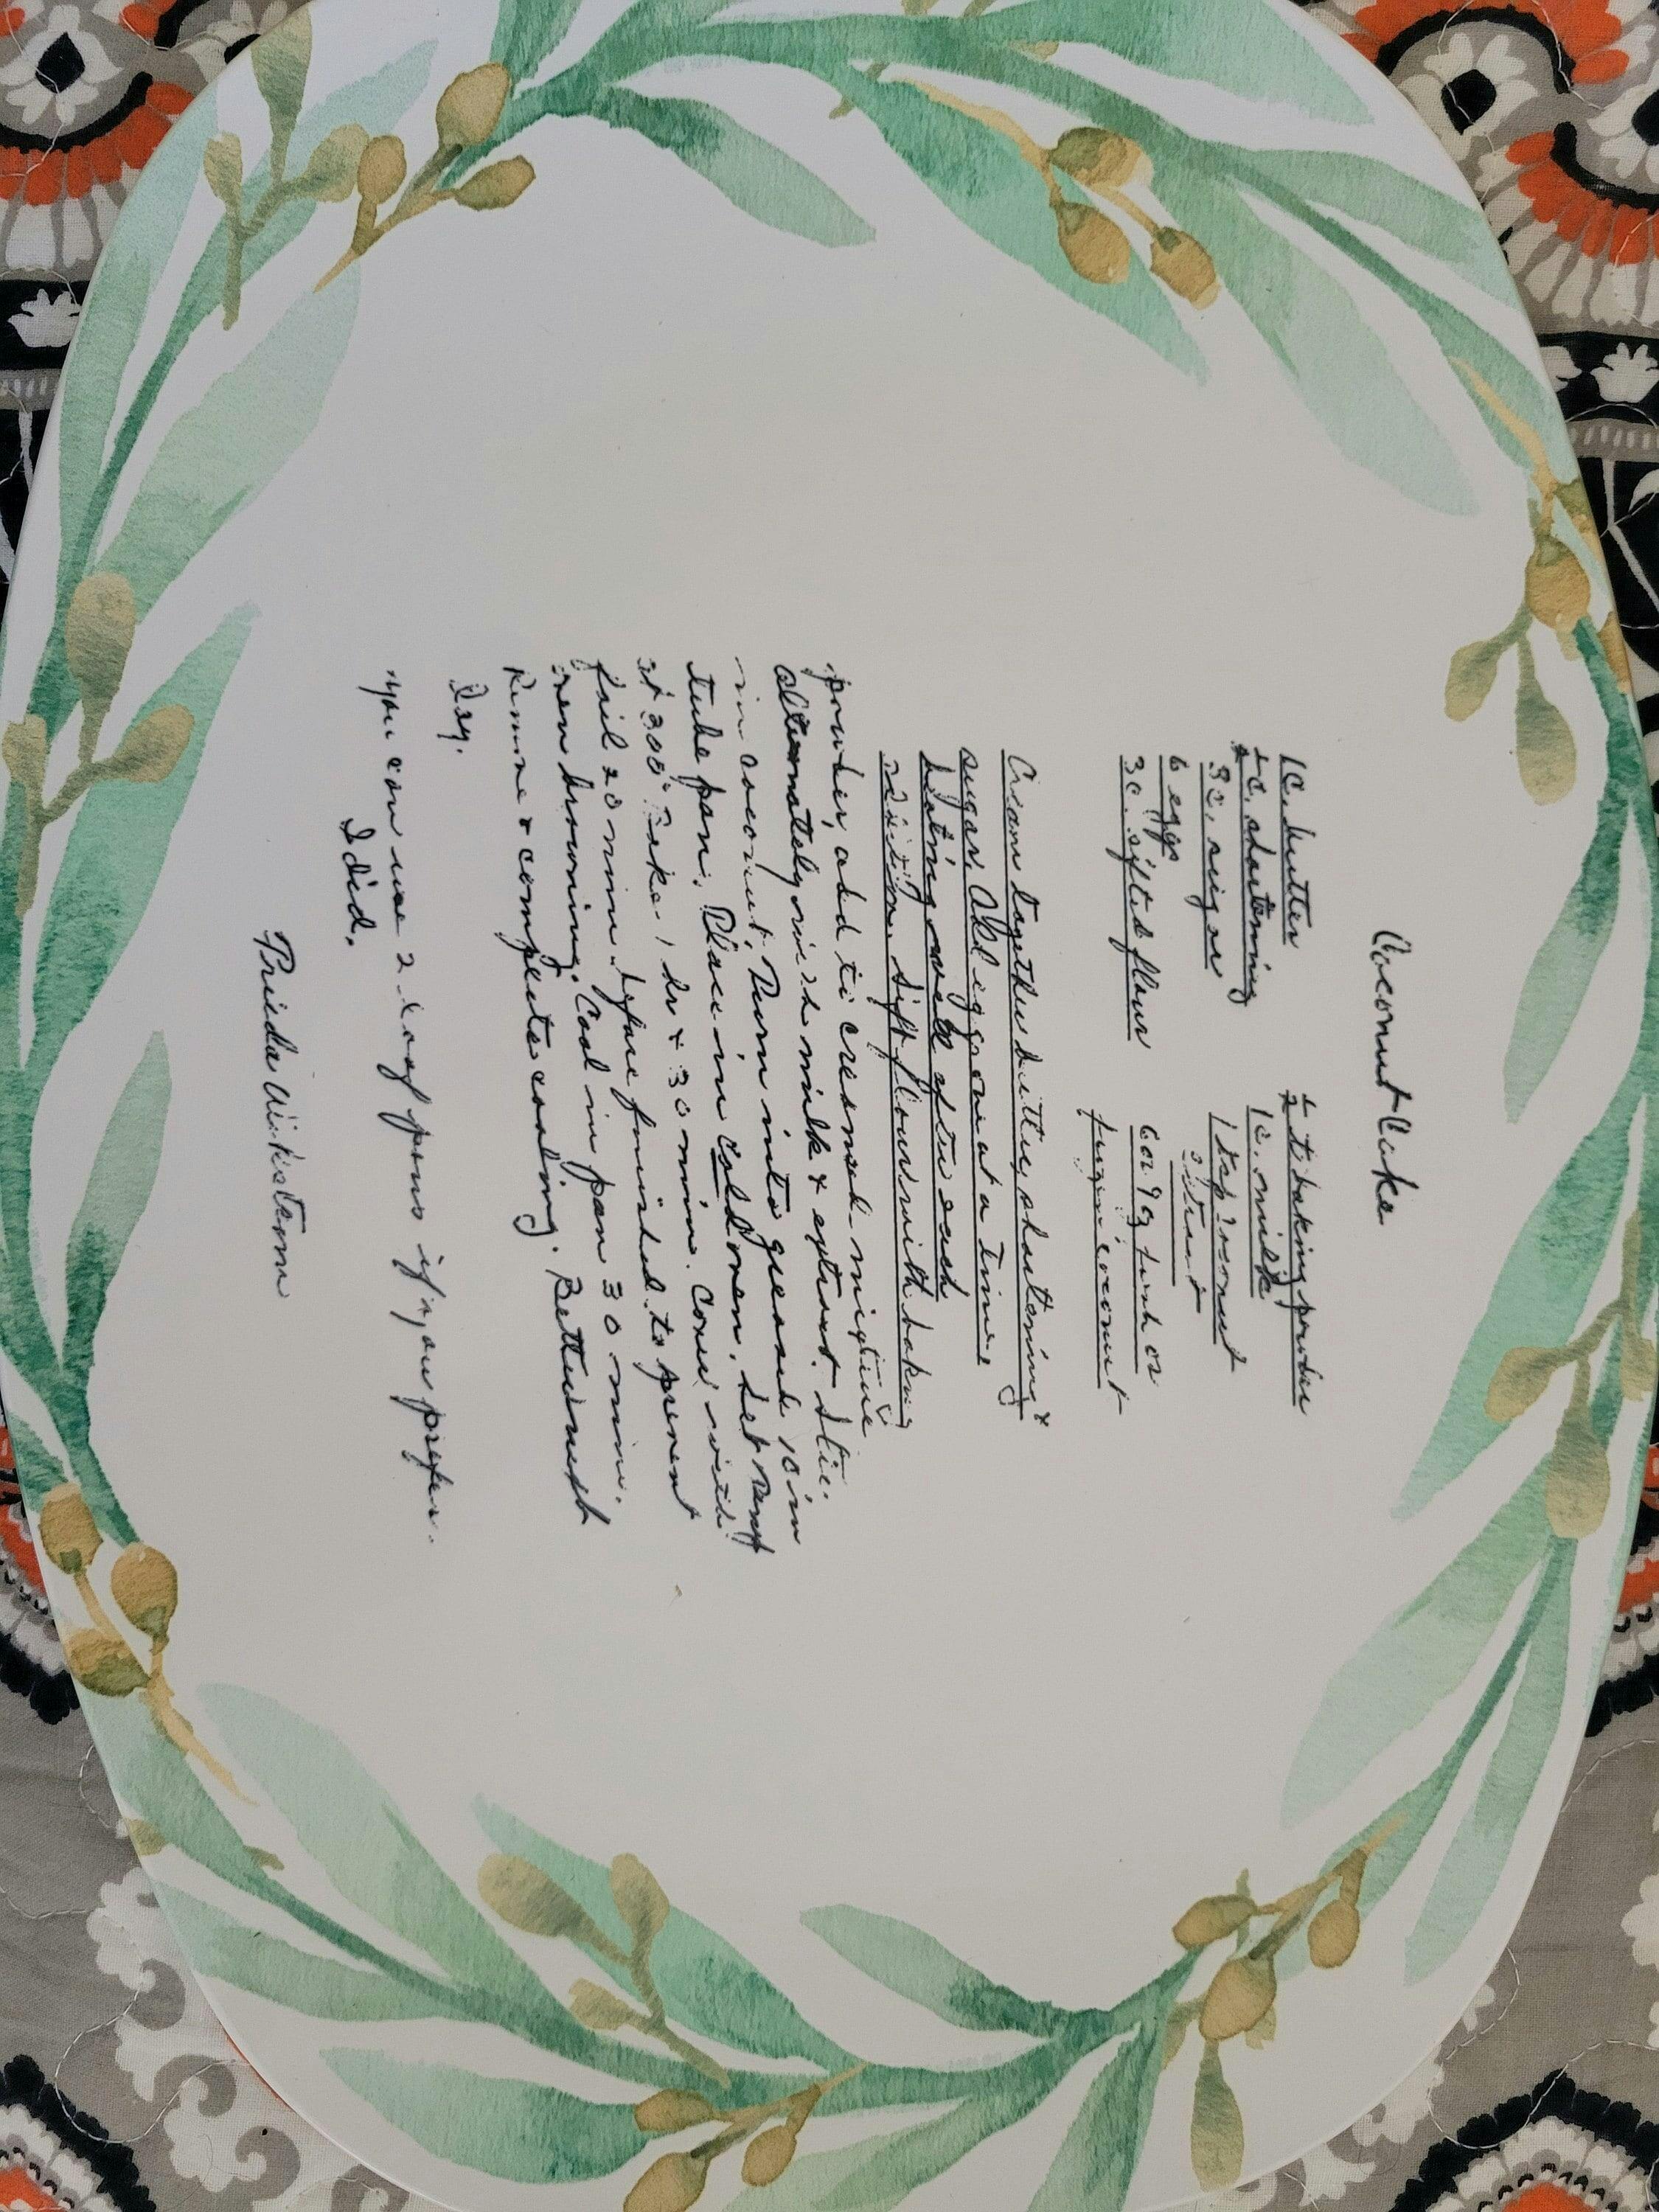 Coconut Cake
1C. butter
½C. shortening
3C. sugar
6 eggs
3C. sifted flour
½ t baking powder
1C. milk
1 tsp coconut
extract
6 oz pkg fresh or
frozen coconut
Cream together butter, shortening &
sugar. Add eggs one at a time
beating well after each
addition. Sift flour with baking
powder, add to creamed mixture
alternately with milk & extract. Stir
in coconut. Turn into greased 10 in
tube pan. Place in cold oven. Set temp
at 300° Bake 1 hr & 30 min. Cover with
foil 20 min. before finished to prevent
over browning. Cool in pan 30 min.
Remove & complete cooling. Better next
day.
you can use 2 loaf pans if you prefer.
I did.
Frieda